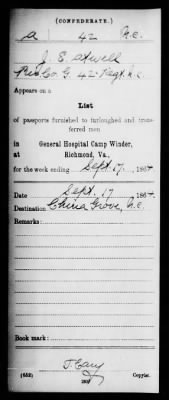 (CONFEDERATE.)
a 42 N.C.
J. S. Atwell
Pvt Co. G. 42 Regt. N.C.
Appears on a
List
of passports furnished to furloughed and trans-
ferred men
in General Hospital Camp Winder,
at Richmond, Va.,
for the week ending Sept. 17, 1864.
Date Sept. 17, 1864.
Destination China Grove, N.C.
Remarks:
Book mark:
(652) Copyist.